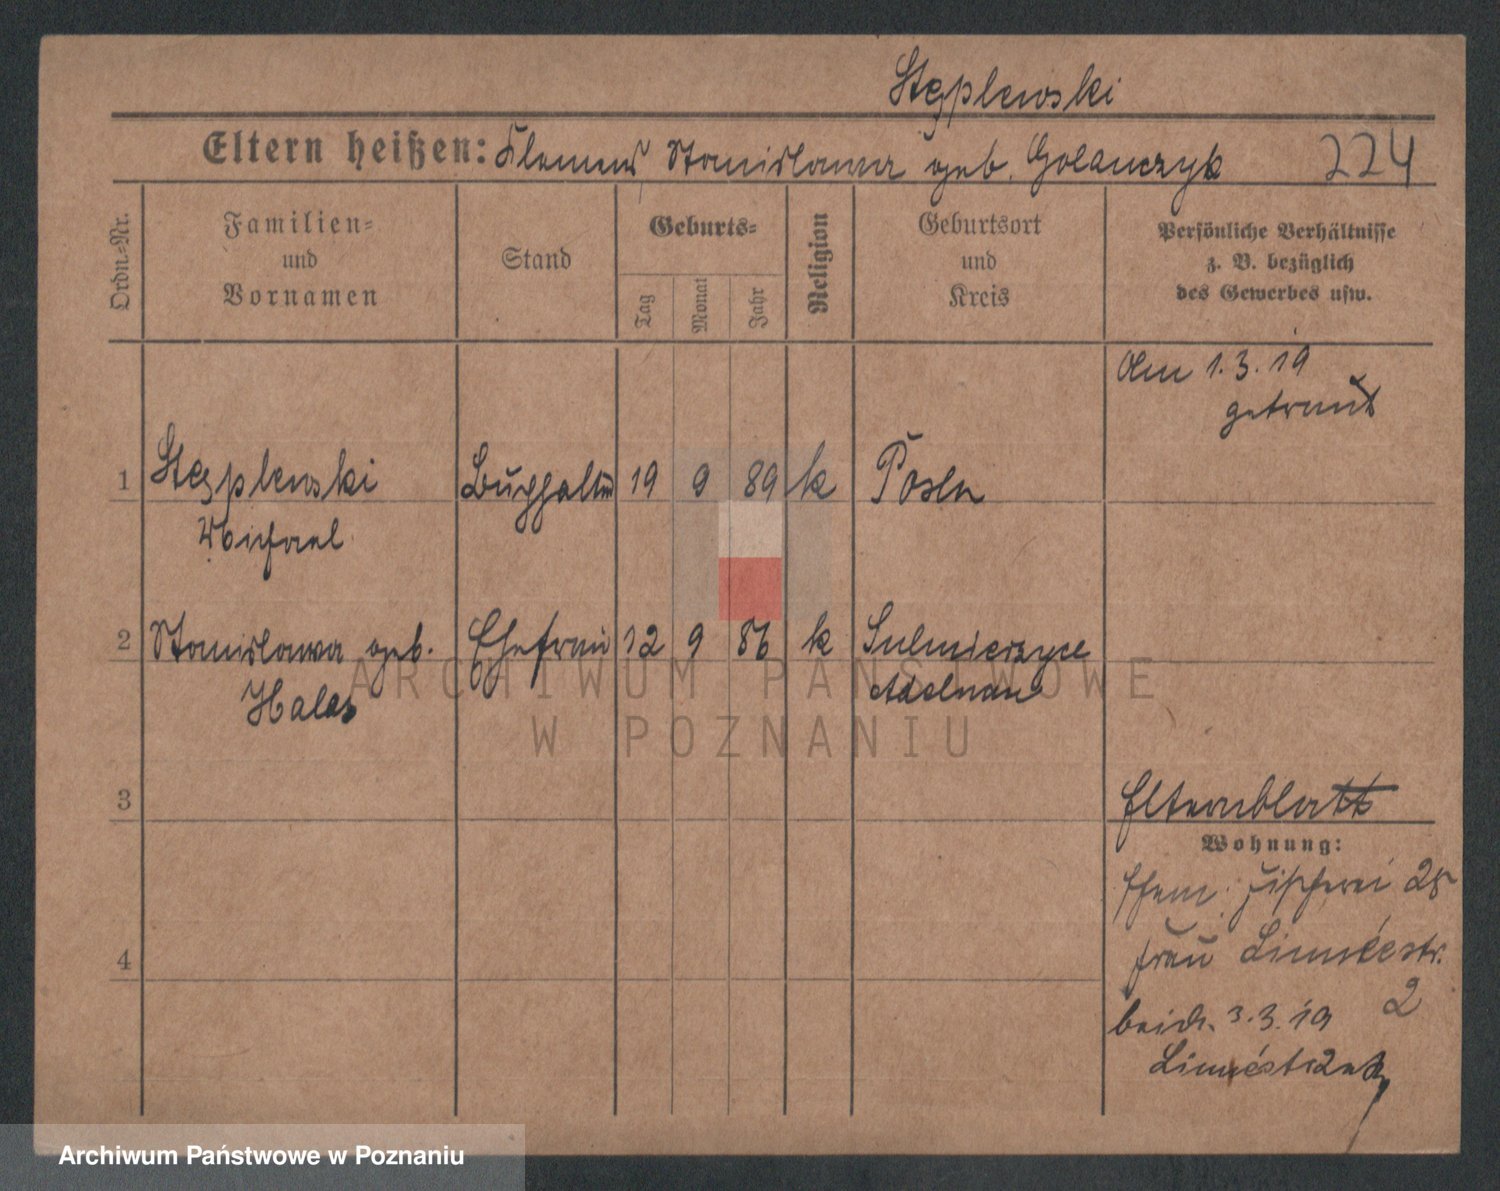 Stęplewski
Eltern heißen: Klemens Stanislawa geb. Golanczyk 224
Ordn.-Nr.
Familien-
und
Vornamen
Stand
Geburts-
Tag
Monat
Jahr
Religion
Geburtsort
und
Kreis
Persönliche Verhältnisse
z. B. bezüglich
des Gewerbes usw.
Am 1.3.19
getraut
1 Stęplewski Buchhalter 19 9 89 k Posen
Michael
2 Stanislawa geb. Ehefrau 12 9 86 k Sulmierzyce
Halas Adelnau
3
Elternblatt
Wohnung:
Ehem. Fischerei 28
Frau Linnéestr.
2
4
beide. 3.3.19
Linnéstr 2
ARCHIWUM PAŃSTWOWE
W POZNANIU
Archiwum Państwowe w Poznaniu